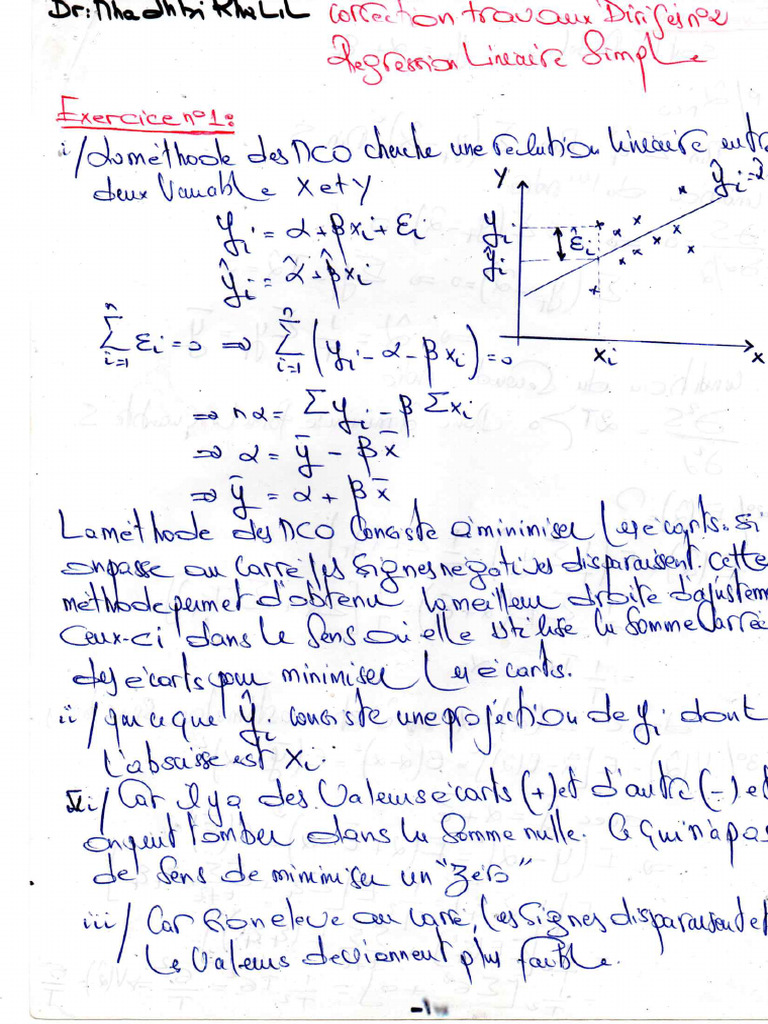 Dr: Dhadhbi Khalil Correction travaux Dirigés n°2
Regression Lineaire Simple
Exercice n°1:
i/ La méthode des MCO cherche une relation lineaire entr
deux Variable X et Y
Y
ŷi = α̂
yi = α + βxi + εi
yi
ŷi
ε̂i
ŷi = α̂ + β̂xi
xi
x
n∑i=1 εi = 0 ⇒ n∑i=1 (yi - α - βxi) = 0
⇒ nα = Σyi - β Σxi
⇒ α = ȳ - βx̄
⇒ ȳ = α + βx̄
La méthode des MCO Consiste à minimiser les écarts. Si
on passe au carré les signes négatives disparaissent. Cette
méthode permet d'obtenir la meilleur droite d'ajustem
Ceux-ci dans le sens où elle utilise la somme carré
des écarts pour minimiser les écarts.
ii/ que ŷi consiste une projection de yi dont
l'abscisse est xi.
Car il y a des Valeurs écarts (+) et d'autre (-) e
on peut tomber dans la somme nulle. Ce qui n'a pas
de sens de minimiser un "Zéro"
iii/ Car si on eleve au carré, les signes disparaissent e
les Valeurs deviennent plus faible.
-1-